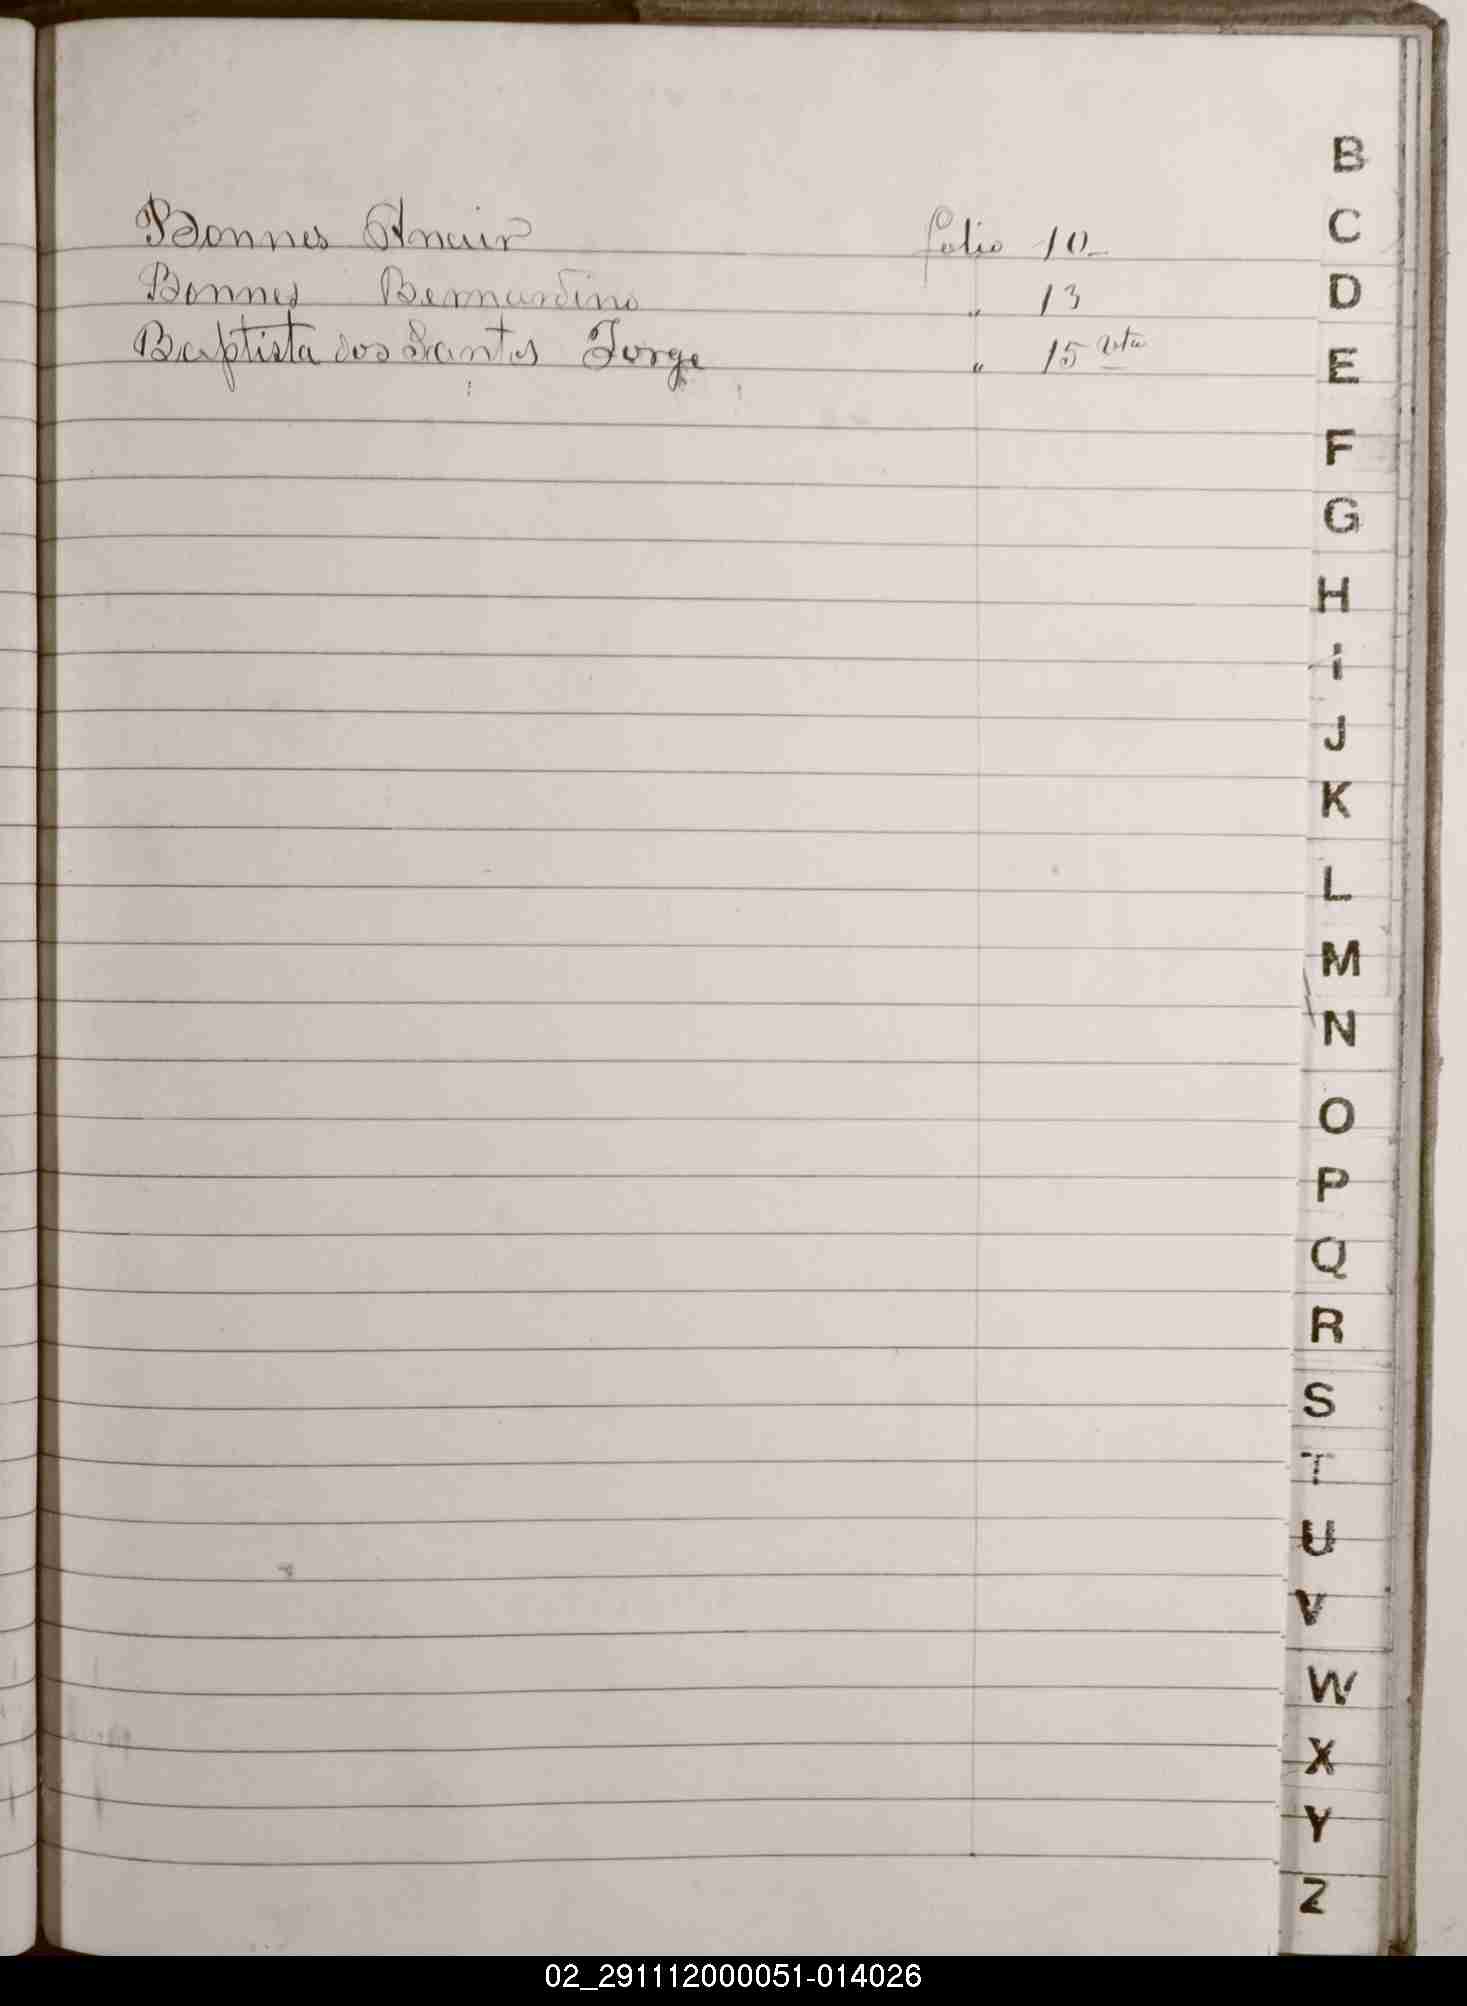 Bonnes Anair folio 10
Bonnes Bernardino " 13
Baptista dos Santos Jorge " 15 vta
B
C
D
E
F
G
H
I
J
K
L
M
N
O
P
Q
R
S
T
U
V
W
X
Y
Z
02_291112000051-014026